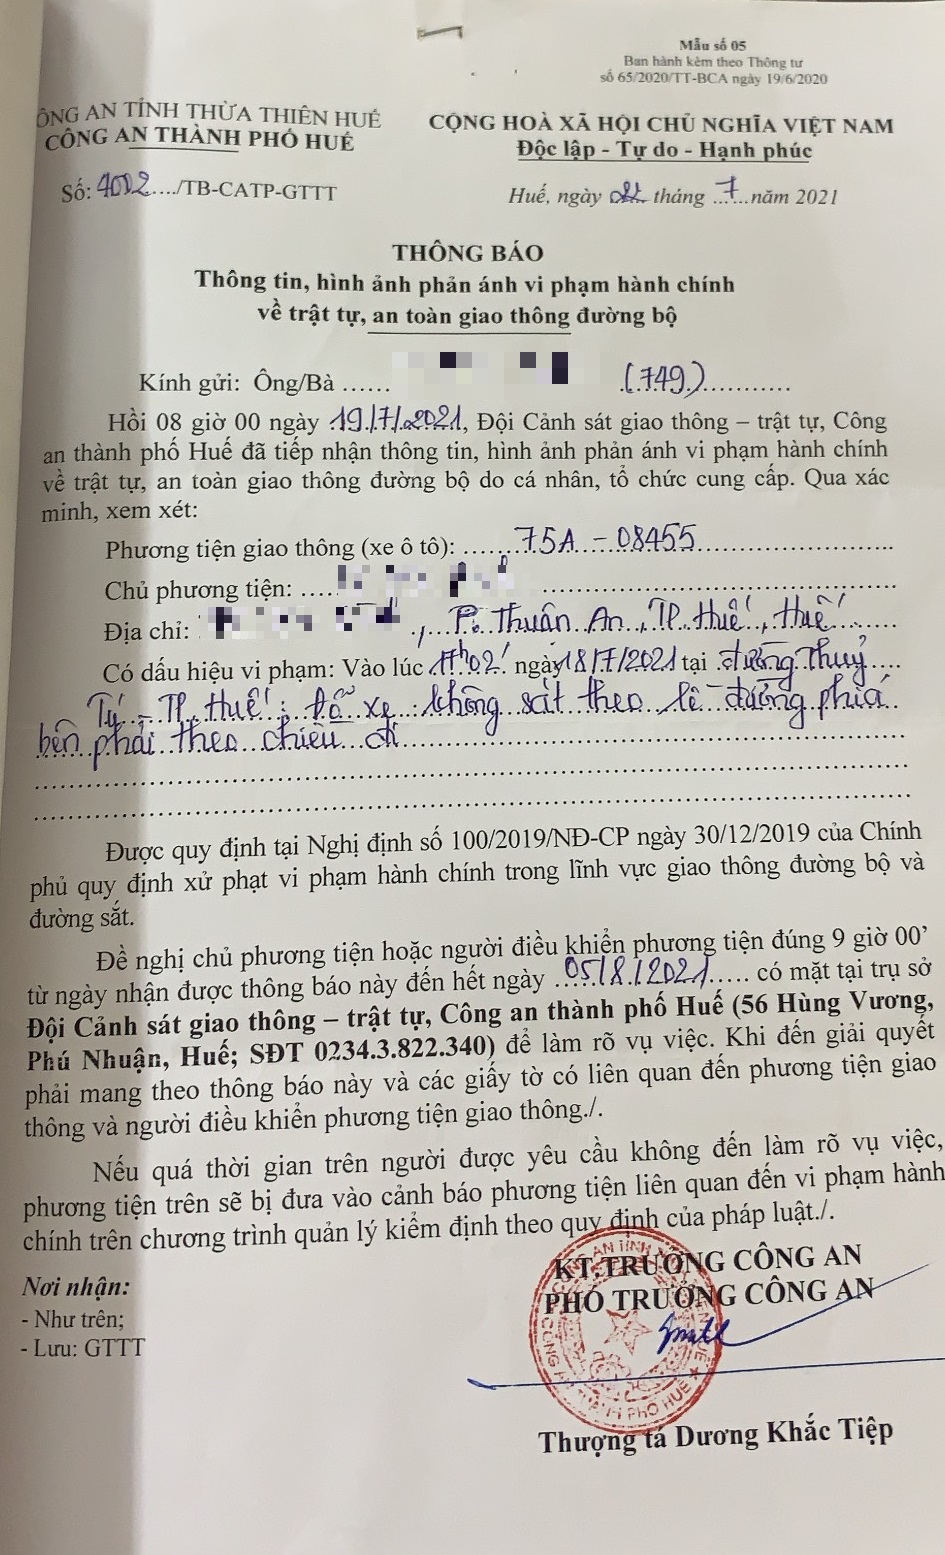 Mẫu số 05
Ban hành kèm theo Thông tư
số 65/2020/TT-BCA ngày 19/6/2020
ÔNG AN TỈNH THỪA THIÊN HUẾ
CÔNG AN THÀNH PHỐ HUẾ
CỘNG HOÀ XÃ HỘI CHỦ NGHĨA VIỆT NAM
Độc lập - Tự do - Hạnh phúc
Số: 4002..../TB-CATP-GTTT
Huế, ngày tháng ..7....năm 2021
THÔNG BÁO
Thông tin, hình ảnh phản ánh vi phạm hành chính
về trật tự, an toàn giao thông đường bộ
Kính gửi: Ông/Bà ...... (749)............
Hồi 08 giờ 00 ngày 19/7/2021, Đội Cảnh sát giao thông – trật tự, Công
an thành phố Huế đã tiếp nhận thông tin, hình ảnh phản ánh vi phạm hành chính
về trật tự, an toàn giao thông đường bộ do cá nhân, tổ chức cung cấp. Qua xác
minh, xem xét:
Phương tiện giao thông (xe ô tô): ........75A - 08455..............................
Chủ phương tiện: .....
Địa chỉ: ., P. Thuận An, TP Huế, Huế
Có dấu hiệu vi phạm: Vào lúc 17h02' ngày 18/7/2021 tại đường Thuỷ....
Tú - TP. Huế: Đỗ xe không sát theo lề đường phía
bên phải theo chiều đi
Được quy định tại Nghị định số 100/2019/NĐ-CP ngày 30/12/2019 của Chính
phủ quy định xử phạt vi phạm hành chính trong lĩnh vực giao thông đường bộ và
đường sắt.
Đề nghị chủ phương tiện hoặc người điều khiển phương tiện đúng 9 giờ 00’
từ ngày nhận được thông báo này đến hết ngày ....05/8/2021..... có mặt tại trụ sở
Đội Cảnh sát giao thông – trật tự, Công an thành phố Huế (56 Hùng Vương,
Phú Nhuận, Huế; SĐT 0234.3.822.340) để làm rõ vụ việc. Khi đến giải quyết
phải mang theo thông báo này và các giấy tờ có liên quan đến phương tiện giao
thông và người điều khiển phương tiện giao thông./.
Nếu quá thời gian trên người được yêu cầu không đến làm rõ vụ việc,
phương tiện trên sẽ bị đưa vào cảnh báo phương tiện liên quan đến vi phạm hành
chính trên chương trình quản lý kiểm định theo quy định của pháp luật./.
Nơi nhận:
- Như trên;
- Lưu: GTTT
KT.TRƯỞNG CÔNG AN
PHÓ TRƯỞNG CÔNG AN
Thượng tá Dương Khắc Tiệp